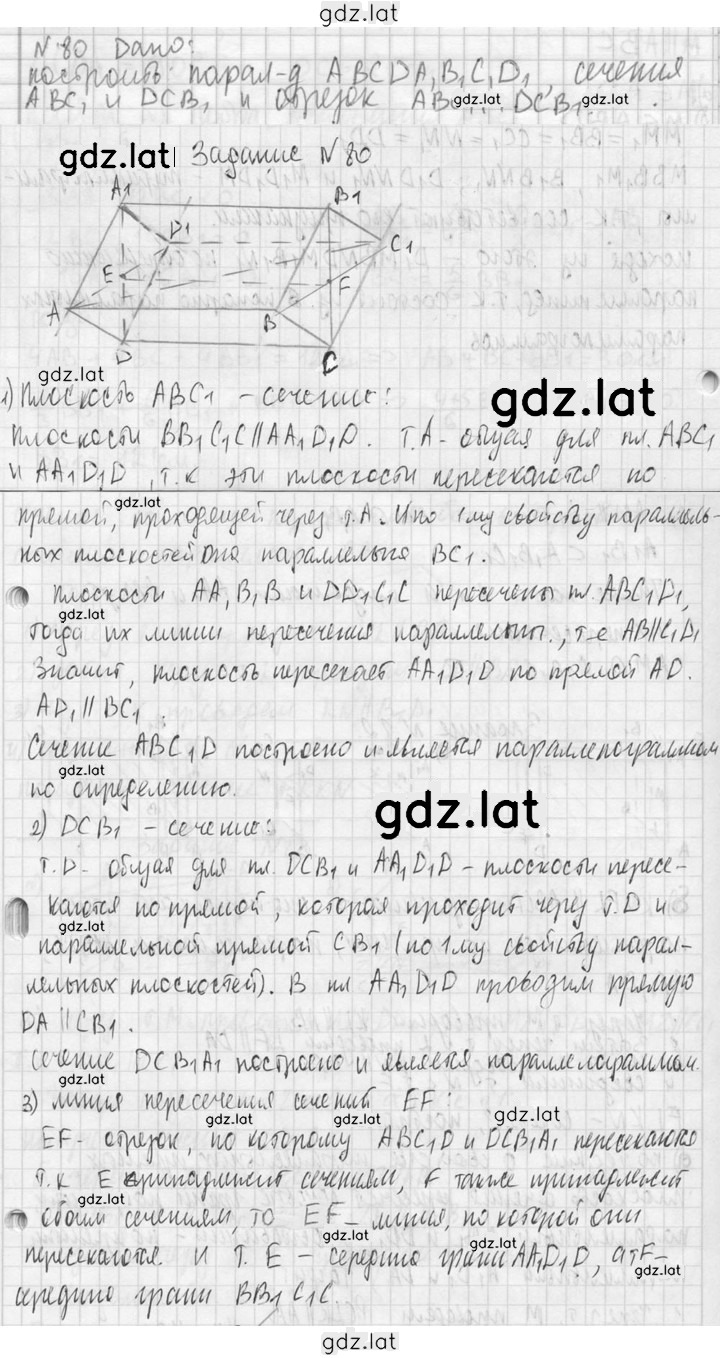 gdz.lat
N 80 Дано:
построить парал-д ABCDA1B1C1D1, сечения
ABC1 и DCB1 и отрезок ABC1 ∩ DCB1.
gdz.lat
gdz.lat Задание N 80
A1 B1
D1 C1
E F
A B
D C
gdz.lat
1) Плоскость ABC1 - сечение:
gdz.lat
плоскости BB1C1C || AA1D1D. т.A - общая для пл. ABC1
и AA1D1D, т.к эти плоскости пересекаются по
gdz.lat
прямой, проходящей через т.A. И по 1му свойству параллель-
ных плоскостей она параллельна BC1.
плоскости AA1B1B и DD1C1C пересечены пл. ABC1D1,
gdz.lat
тогда их линии пересечения параллельны., т-е AB||C1D1
Значит, плоскость пересекает AA1D1D по прямой AD.
gdz.lat
AD1 || BC1.
Сечение ABC1D построено и является параллелограммом
gdz.lat
по определению.
gdz.lat
2) DCB1 - сечение:
т.D - общая для пл. DCB1 и AA1D1D - плоскости пересе-
каются по прямой, которая проходит через т.D и
параллельной прямой CB1 (по 1му свойству парал-
лельных плоскостей). В пл AA1D1D проводим прямую
DA || CB1.
сечение DCB1A1 построено и является параллелограммом.
gdz.lat
3) линия пересечения сечений EF:
gdz.lat gdz.lat
EF - отрезок, по которому ABC1D и DCB1A1 пересекаются
т.к E принадлежит сечениям, F также принадлежит
gdz.lat
обоим сечениям, то EF - линия, по которой они
gdz.lat
пересекаются. И т. E - середина грани AA1D1D, а т F -
gdz.lat
середина грани BB1C1C.
gdz.lat